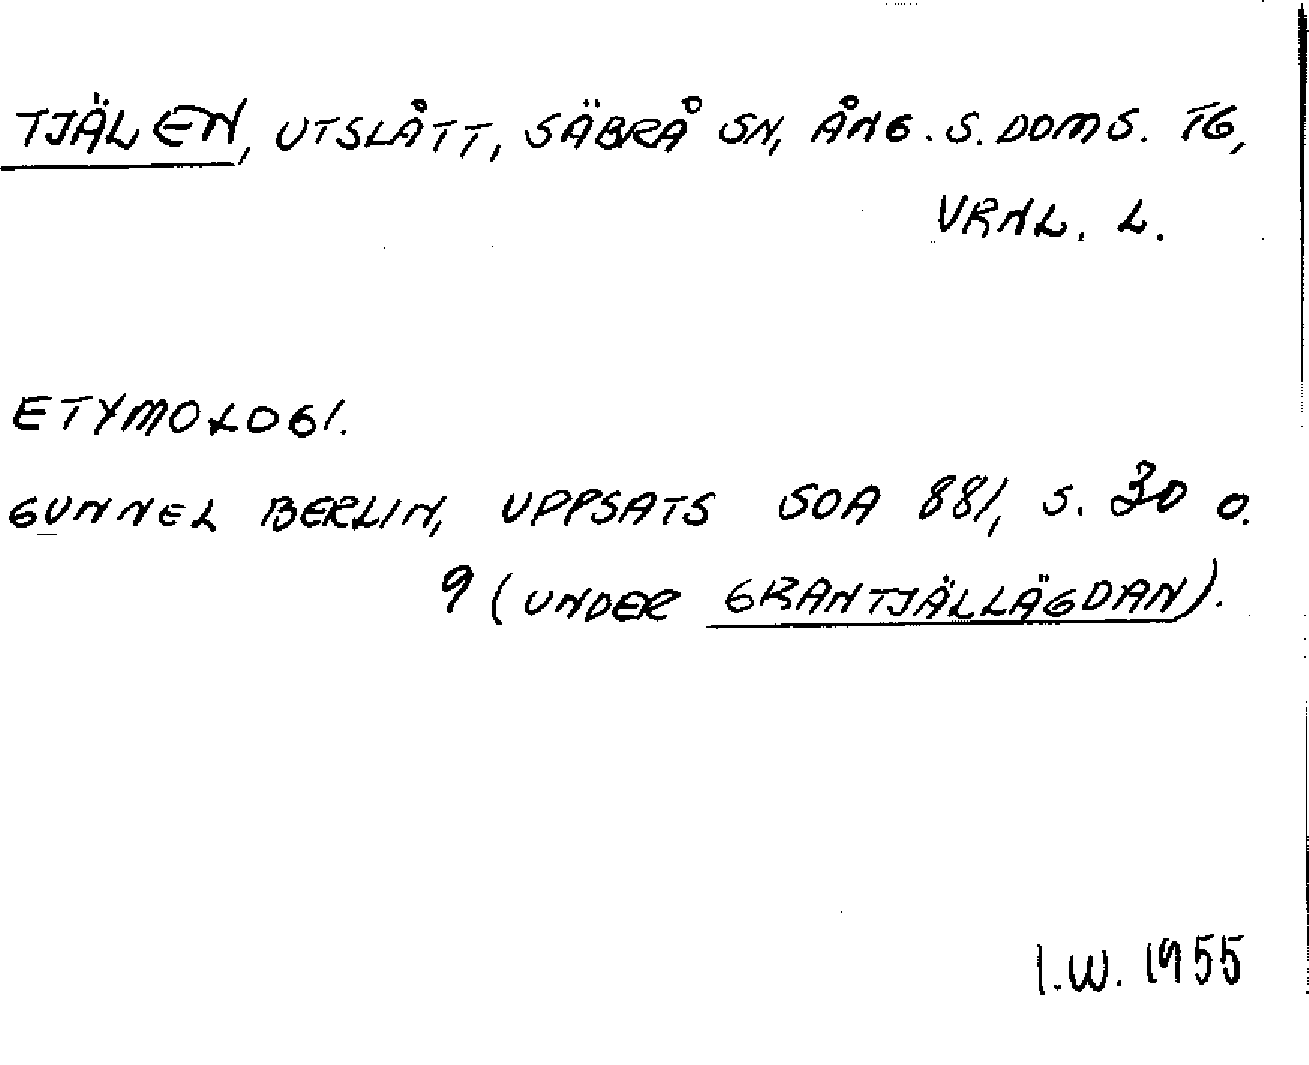 TJÄLEN, UTSLÅTT, SÄBRÅ SN, ÅNG. S. DOMS. TG,
VRNL. L.
ETYMOLOGI.
GUNNEL BERLIN, UPPSATS SOA 881, S. 30 O.
9 (UNDER GRANTJÄLLÄGDAN).
I.W. 1955